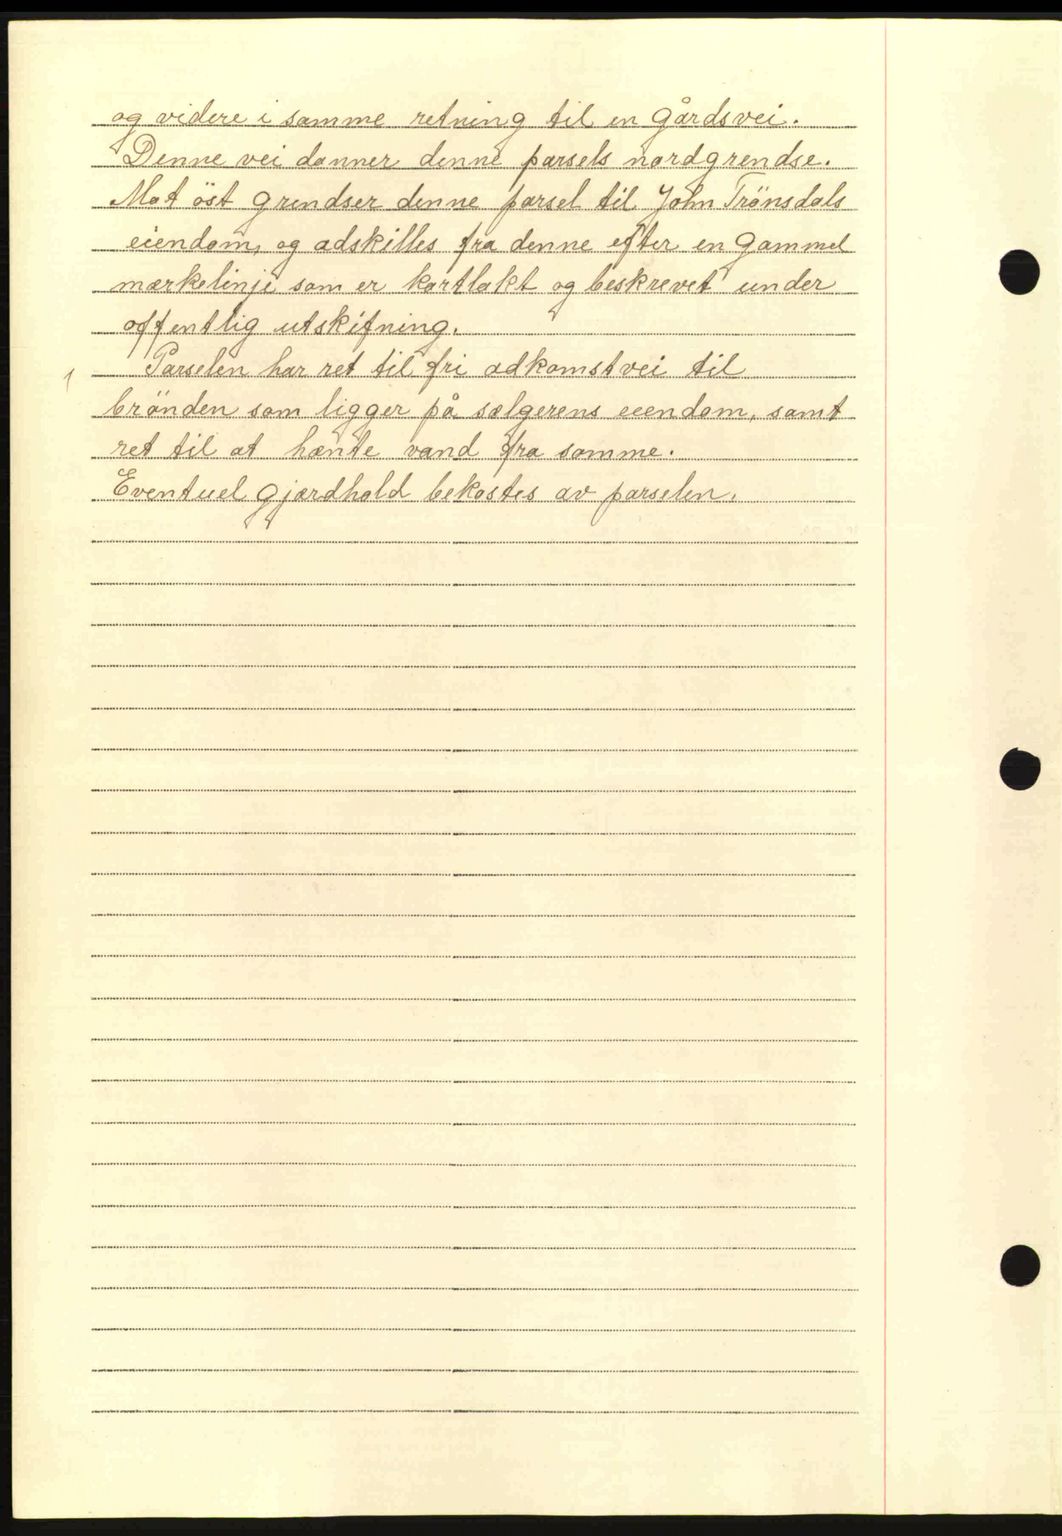 og videre i samme retning til en gårdsvei.
Denne vei danner denne parsels nordgrendse.
Mot öst grendser denne parsel til John Trönsdals
eiendom, og adskilles fra denne efter en gammel
mærkelinje som er kartlakt og beskrevet under
offentlig utskifning.
Parselen har ret til fri adkomstvei til
brönden som ligger på sælgerens eiendom, samt
ret til at hænte vand fra samme.
Eventuel gjærdhold bekostes av parselen.